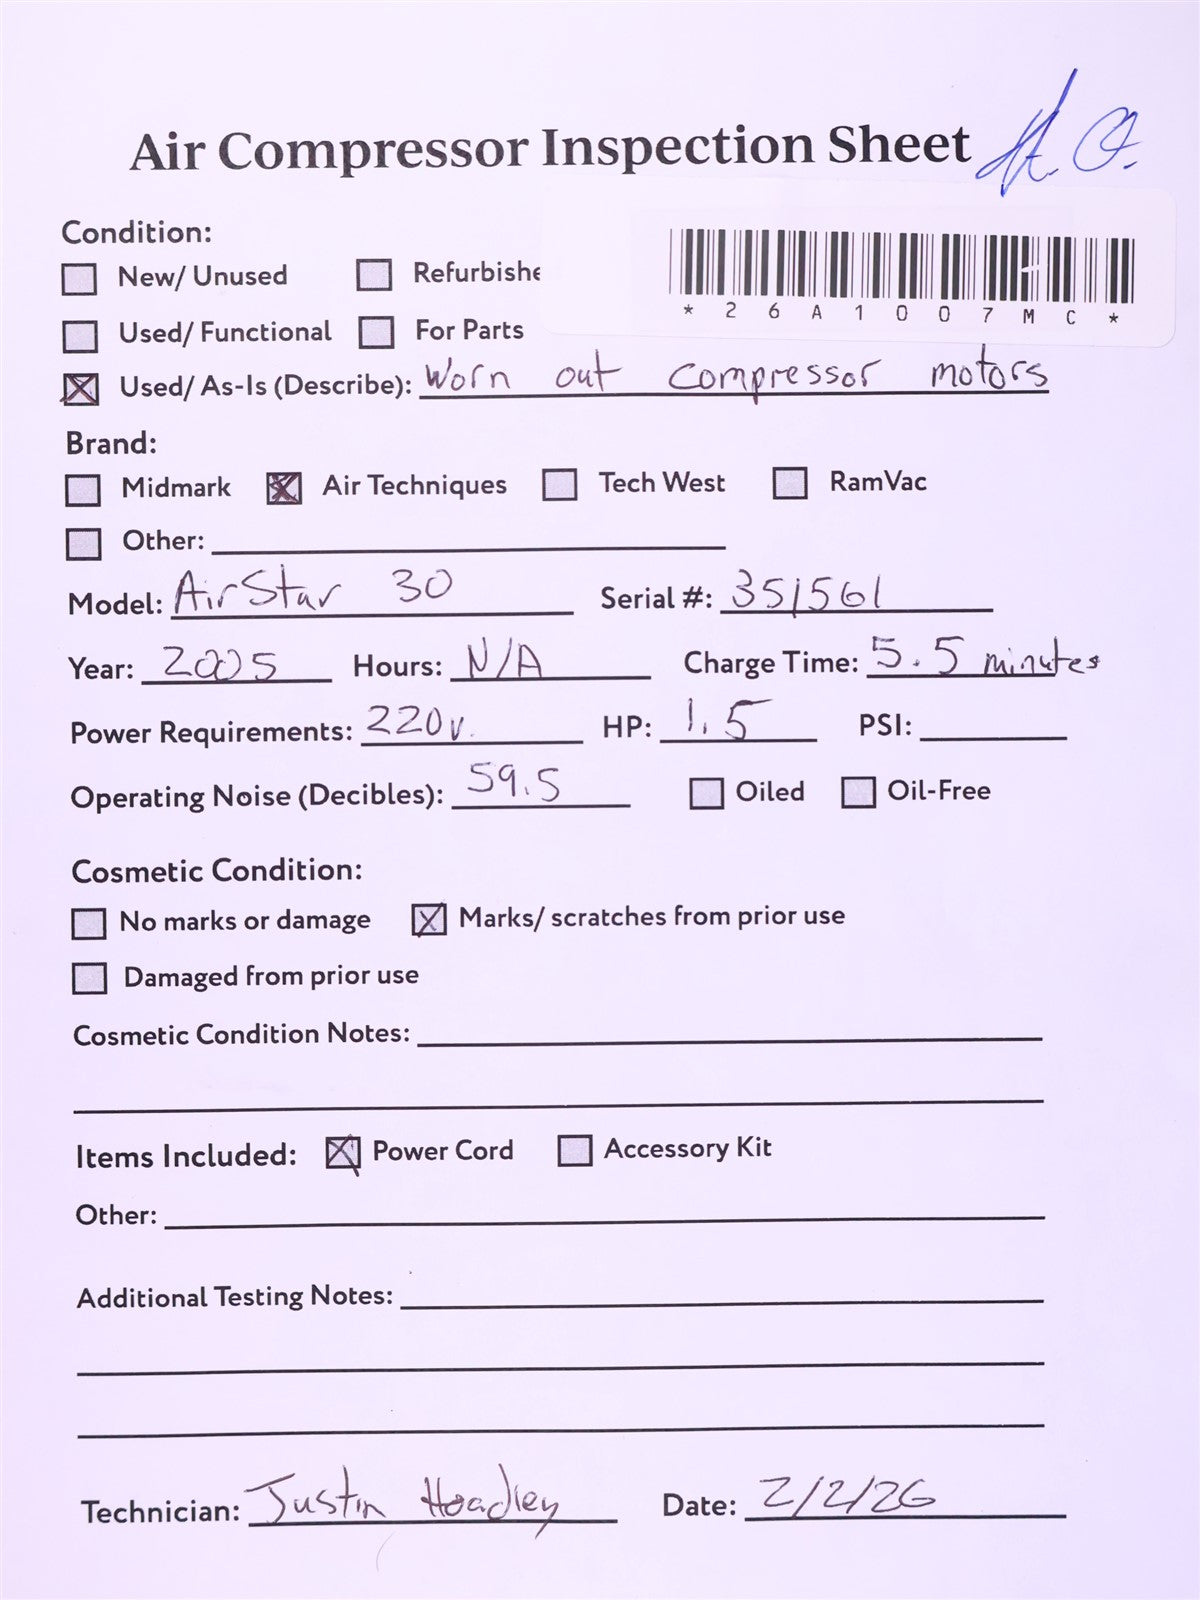 Air Compressor Inspection Sheet
Condition:
New/ Unused Refurbishe
*26A1007MC*
Used/ Functional For Parts
Used/ As-Is (Describe): Worn out compressor motors
Brand:
Midmark Air Techniques Tech West RamVac
Other:
Model: AirStar 30 Serial #: 351561
Year: 2005 Hours: N/A Charge Time: 5.5 minutes
Power Requirements: 220v. HP: 1.5 PSI:
Operating Noise (Decibles): 59.5 Oiled Oil-Free
Cosmetic Condition:
No marks or damage Marks/ scratches from prior use
Damaged from prior use
Cosmetic Condition Notes:
Items Included: Power Cord Accessory Kit
Other:
Additional Testing Notes:
Technician: Justin Hoadley Date: 2/2/26